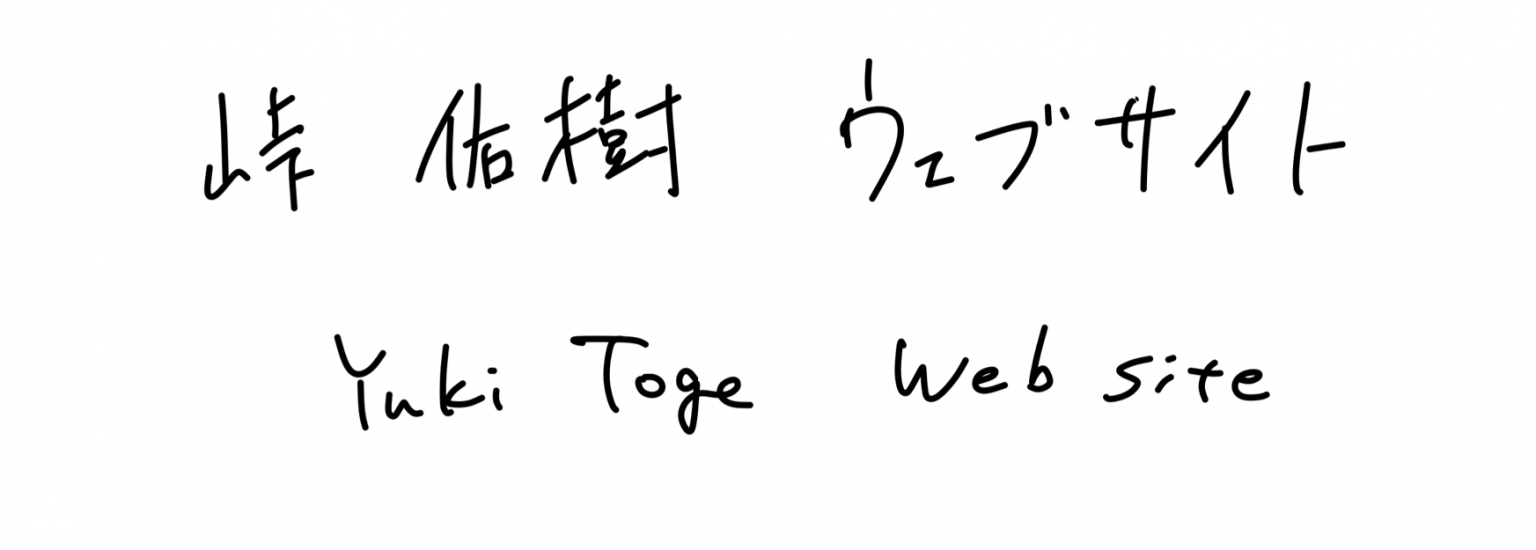 峠 佑樹 ウェブサイト
Yuki Toge Web site